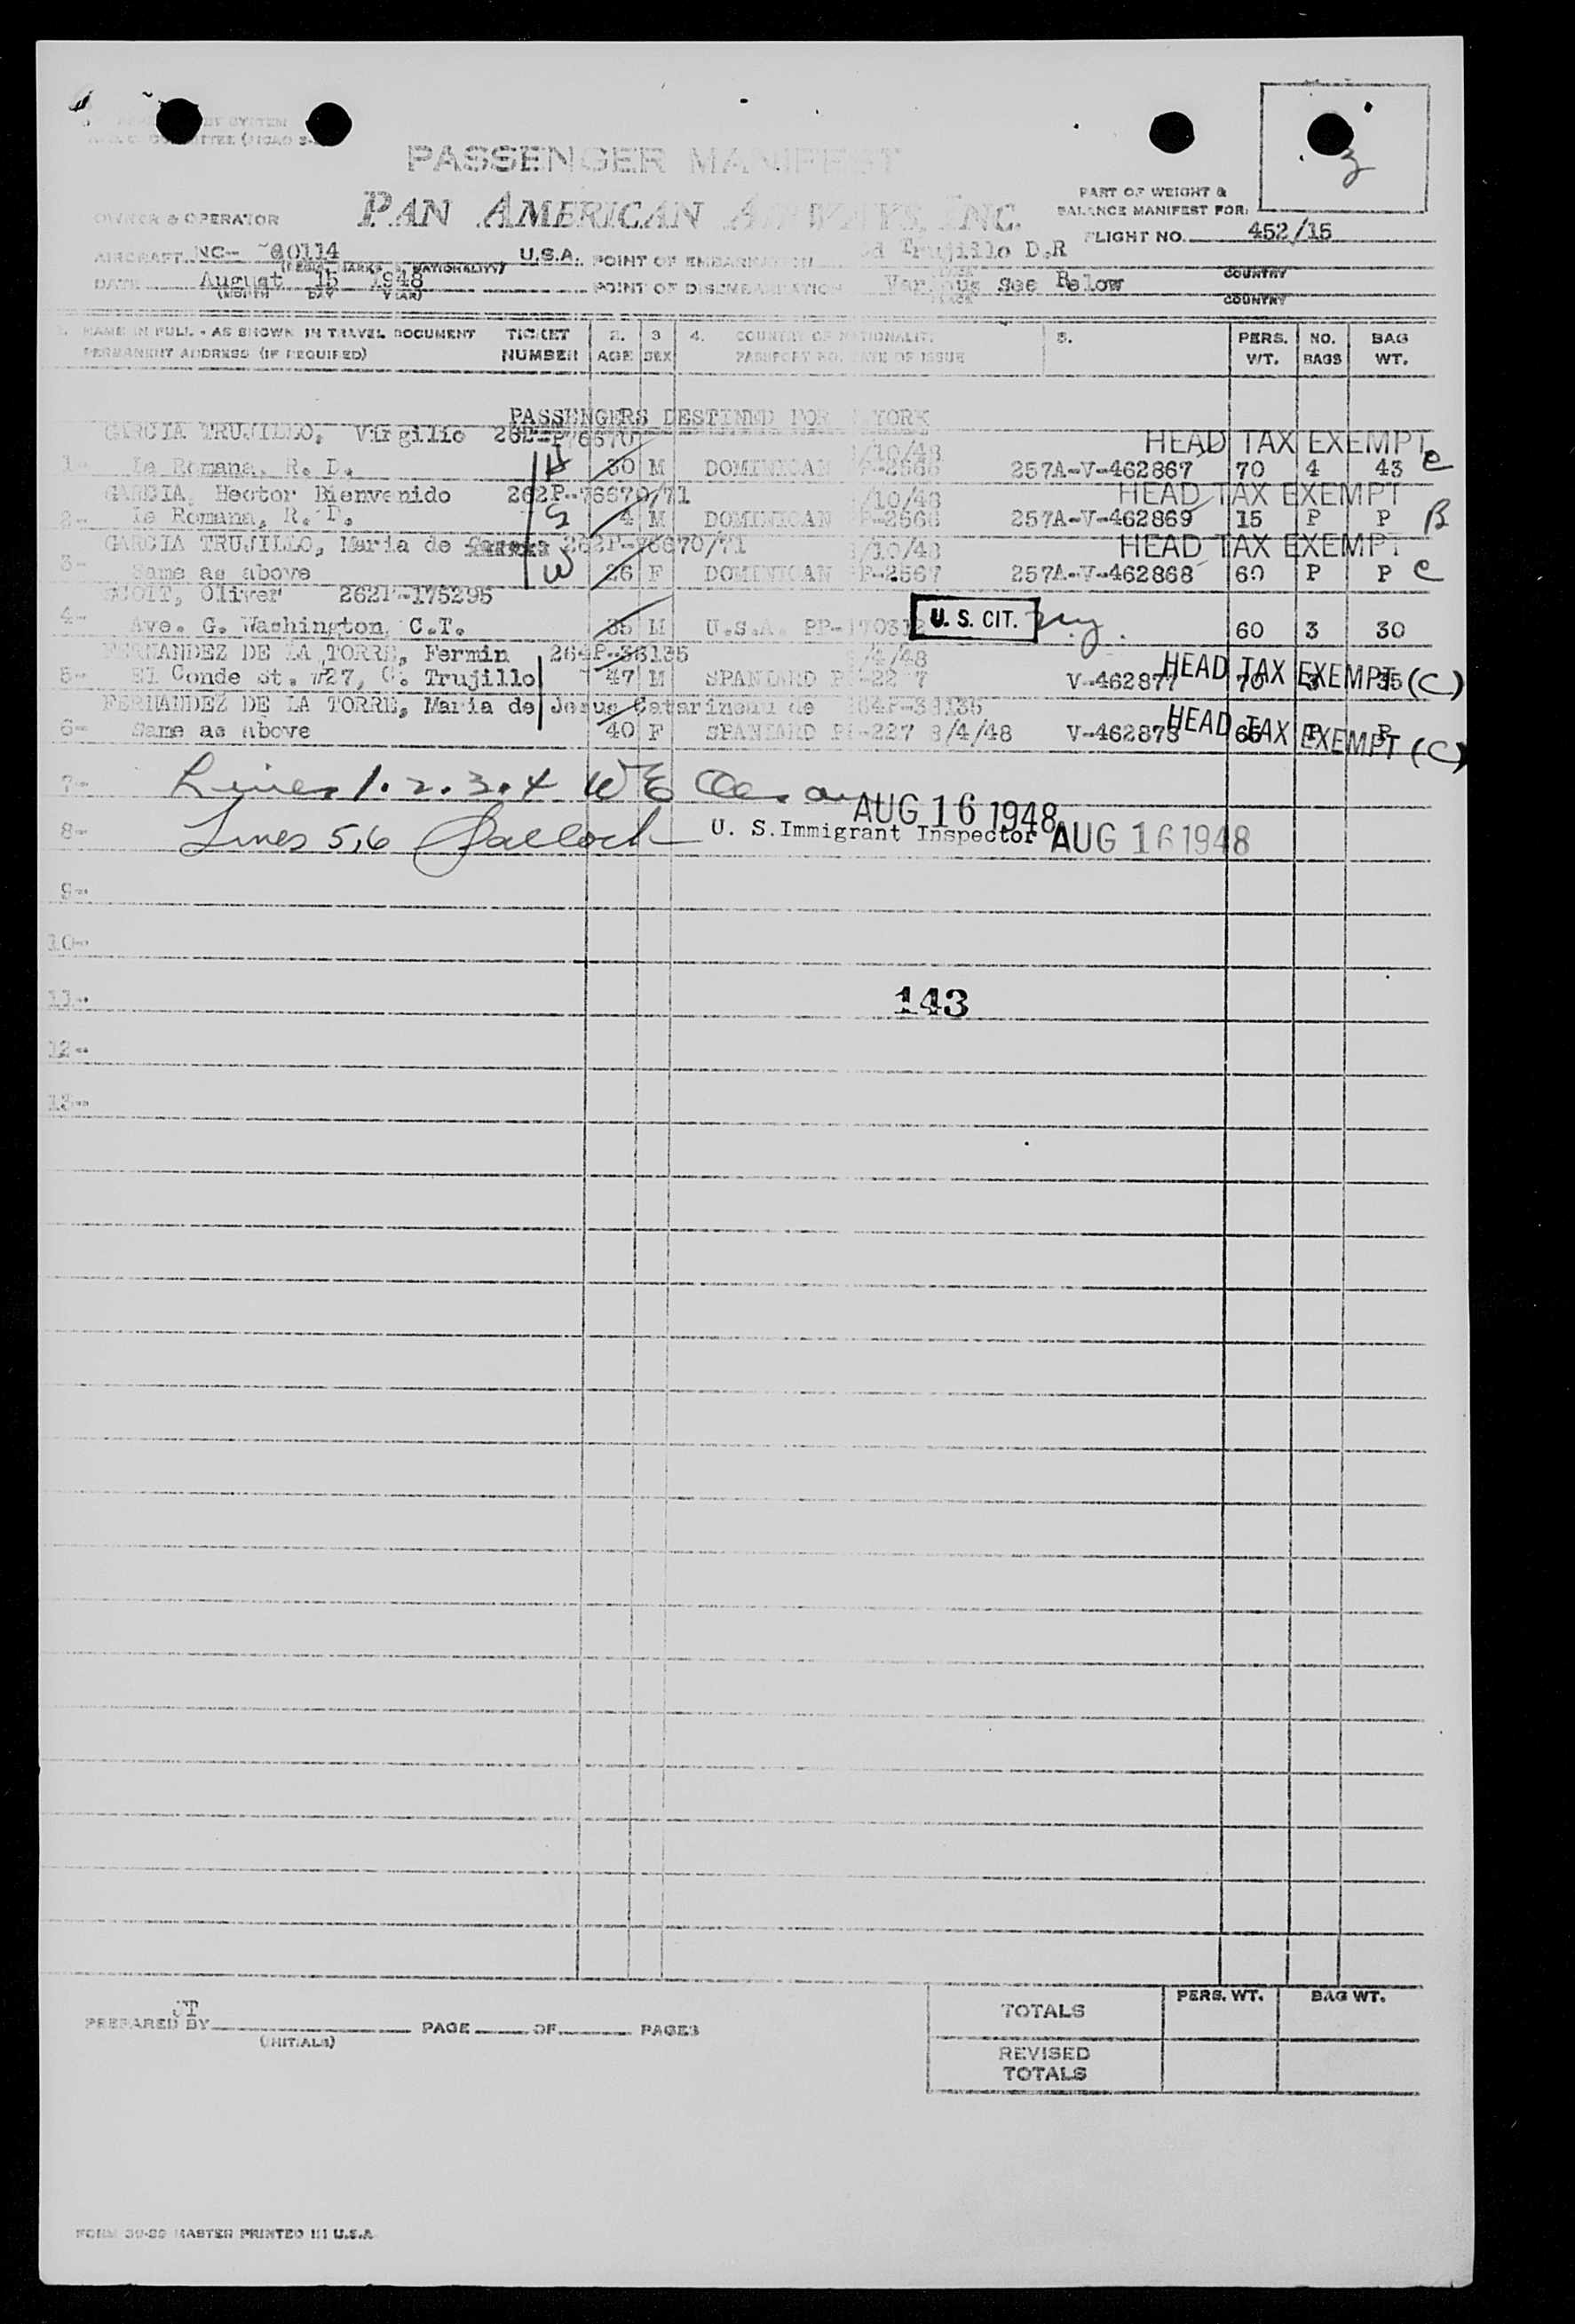 PASSENGER MANIFEST
PAN AMERICAN AIRWAYS, INC.
PART OF WEIGHT &
BALANCE MANIFEST FOR:
OWNER & OPERATOR
FLIGHT NO. 452/15
AIRCRAFT NC-- 80114 U.S.A. POINT OF EMBARKATION Trujillo D.R
DATE August 15 1948 POINT OF DISEMBARKATION Various See Below
(MONTH DAY YEAR) PLACE COUNTRY
1. NAME IN FULL - AS SHOWN IN TRAVEL DOCUMENT TICKET 2. 3 4. COUNTRY OF NATIONALITY 5. PERS. NO. BAG
PERMANENT ADDRESS (IF REQUIRED) NUMBER AGE SEX PASSPORT NO. DATE OF ISSUE WT. BAGS WT.
PASSENGERS DESTINED FOR YORK
GARCIA TRUJILLO, Virgilio 262-P76670 /10/48 HEAD TAX EXEMPT
1- La Romana, R. D. H 30 M DOMINICAN P-2566 257A-V-462867 70 4 43 C
GARCIA, Hector Bienvenido 262P-76670/71 /10/48 HEAD TAX EXEMPT
2- La Romana, R. D. S 4 M DOMINICAN P-2566 257A-V-462869 15 P P B
GARCIA TRUJILLO, Maria de 262P-76670/71 /10/48 HEAD TAX EXEMPT
3- Same as above W 26 F DOMINICAN P-2567 257A-V-462868 60 P P C
SCOTT, Oliver 262P-175295
4- Ave. G. Washington, C.T. 35 M U.S.A. PP- U. S. CIT. N.Y. 60 3 30
FERNANDEZ DE LA TORRE, Fermin 264P-38135 /4/48 HEAD TAX EXEMPT (C)
5- El Conde St. #27, C. Trujillo 47 M SPANIARD V-462877 70 3 35
FERNANDEZ DE LA TORRE, Maria de Jesus Catarineau de 264P-38135
6- Same as above 40 F SPANIARD PP-227 8/4/48 V-462878 65 P P HEAD TAX EXEMPT (C)
7- Lines 1.2.3.4 AUG 16 1948
8- Lines 5,6 U. S. Immigrant Inspector AUG 16 1948
9-
10-
11- 143
12-
13-
JT
PREPARED BY PAGE OF PAGES
(INITIALS)
TOTALS PERS. WT. BAG WT.
REVISED
TOTALS
FORM 30-89 MASTER PRINTED IN U.S.A